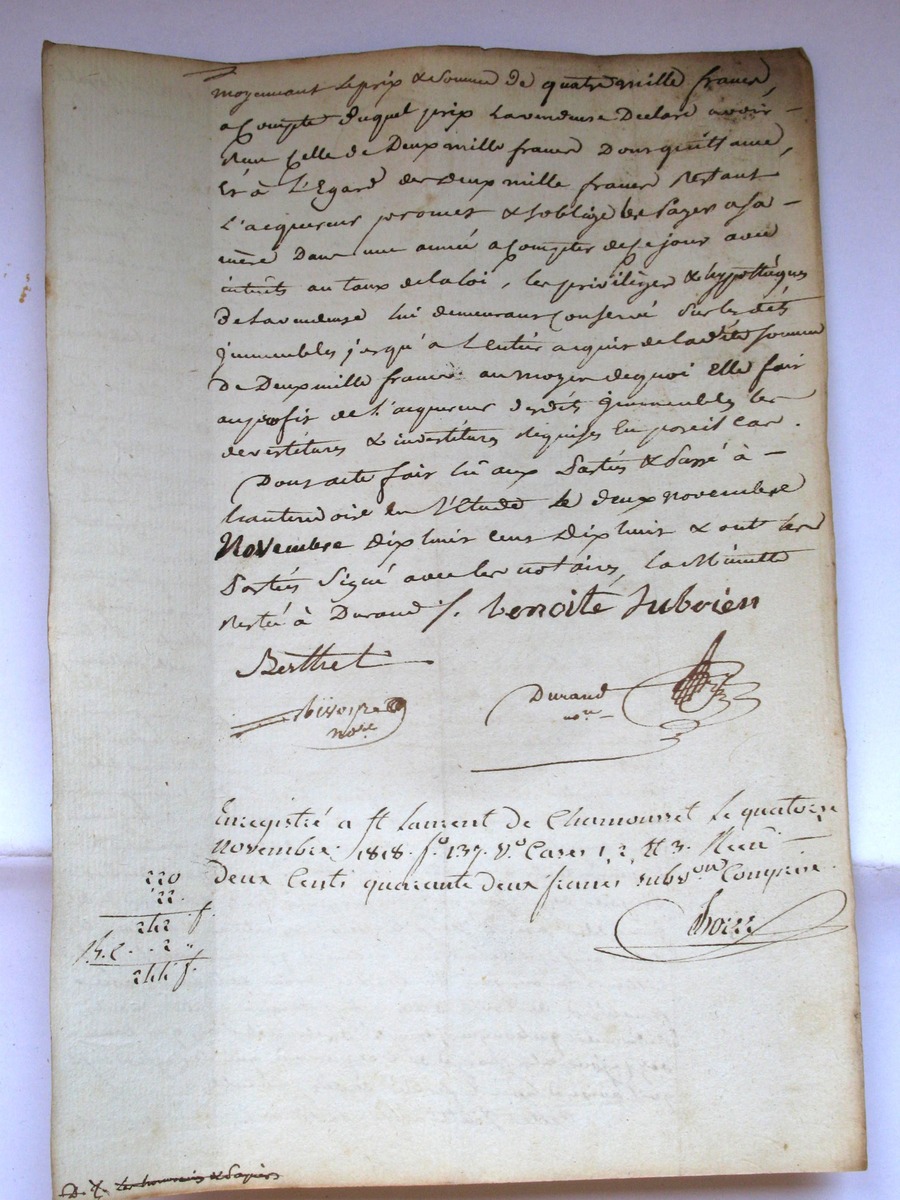 moyennant le prix & somme de quatre mille francs,
a compte duquel prix la vendeuse declare avoir
reçu celle de deux mille francs dont quittance,
Et à l'Egard des deux mille francs restant
L'acquereur promet & soblige les payer a sa
mère dans une année a compter de ce jour avec
intérêts au taux de la loi, les privilèges & hypothèques
de la vendeuse lui demeurant conservé sur lesdits
immeubles jusqu'a l'entier acquit de ladite somme
de Deux mille francs. au moyen de quoi Elle fait
au profit de l'acquereur desdits immeubles les
devestitures & investitures requises En pareil cas.
Dont acte fait lû aux parties & passé à
hauterivoire en l'étude le deux novembre
Novembre dix huit cent dix huit & ont les
parties signé avec les notaires, la Minutte
restée à Durand /. benoite Subrien
Berthet
nore
Durand
nore
Enregistré a St Laurent de Chamousset le quatorze
novembre 1818. fo 137. Vo Cases 1, 2, et 3. Recu
deux Cents quarante deux francs subvon Comprise.
220
22.
242 f.
2 "
244 f.